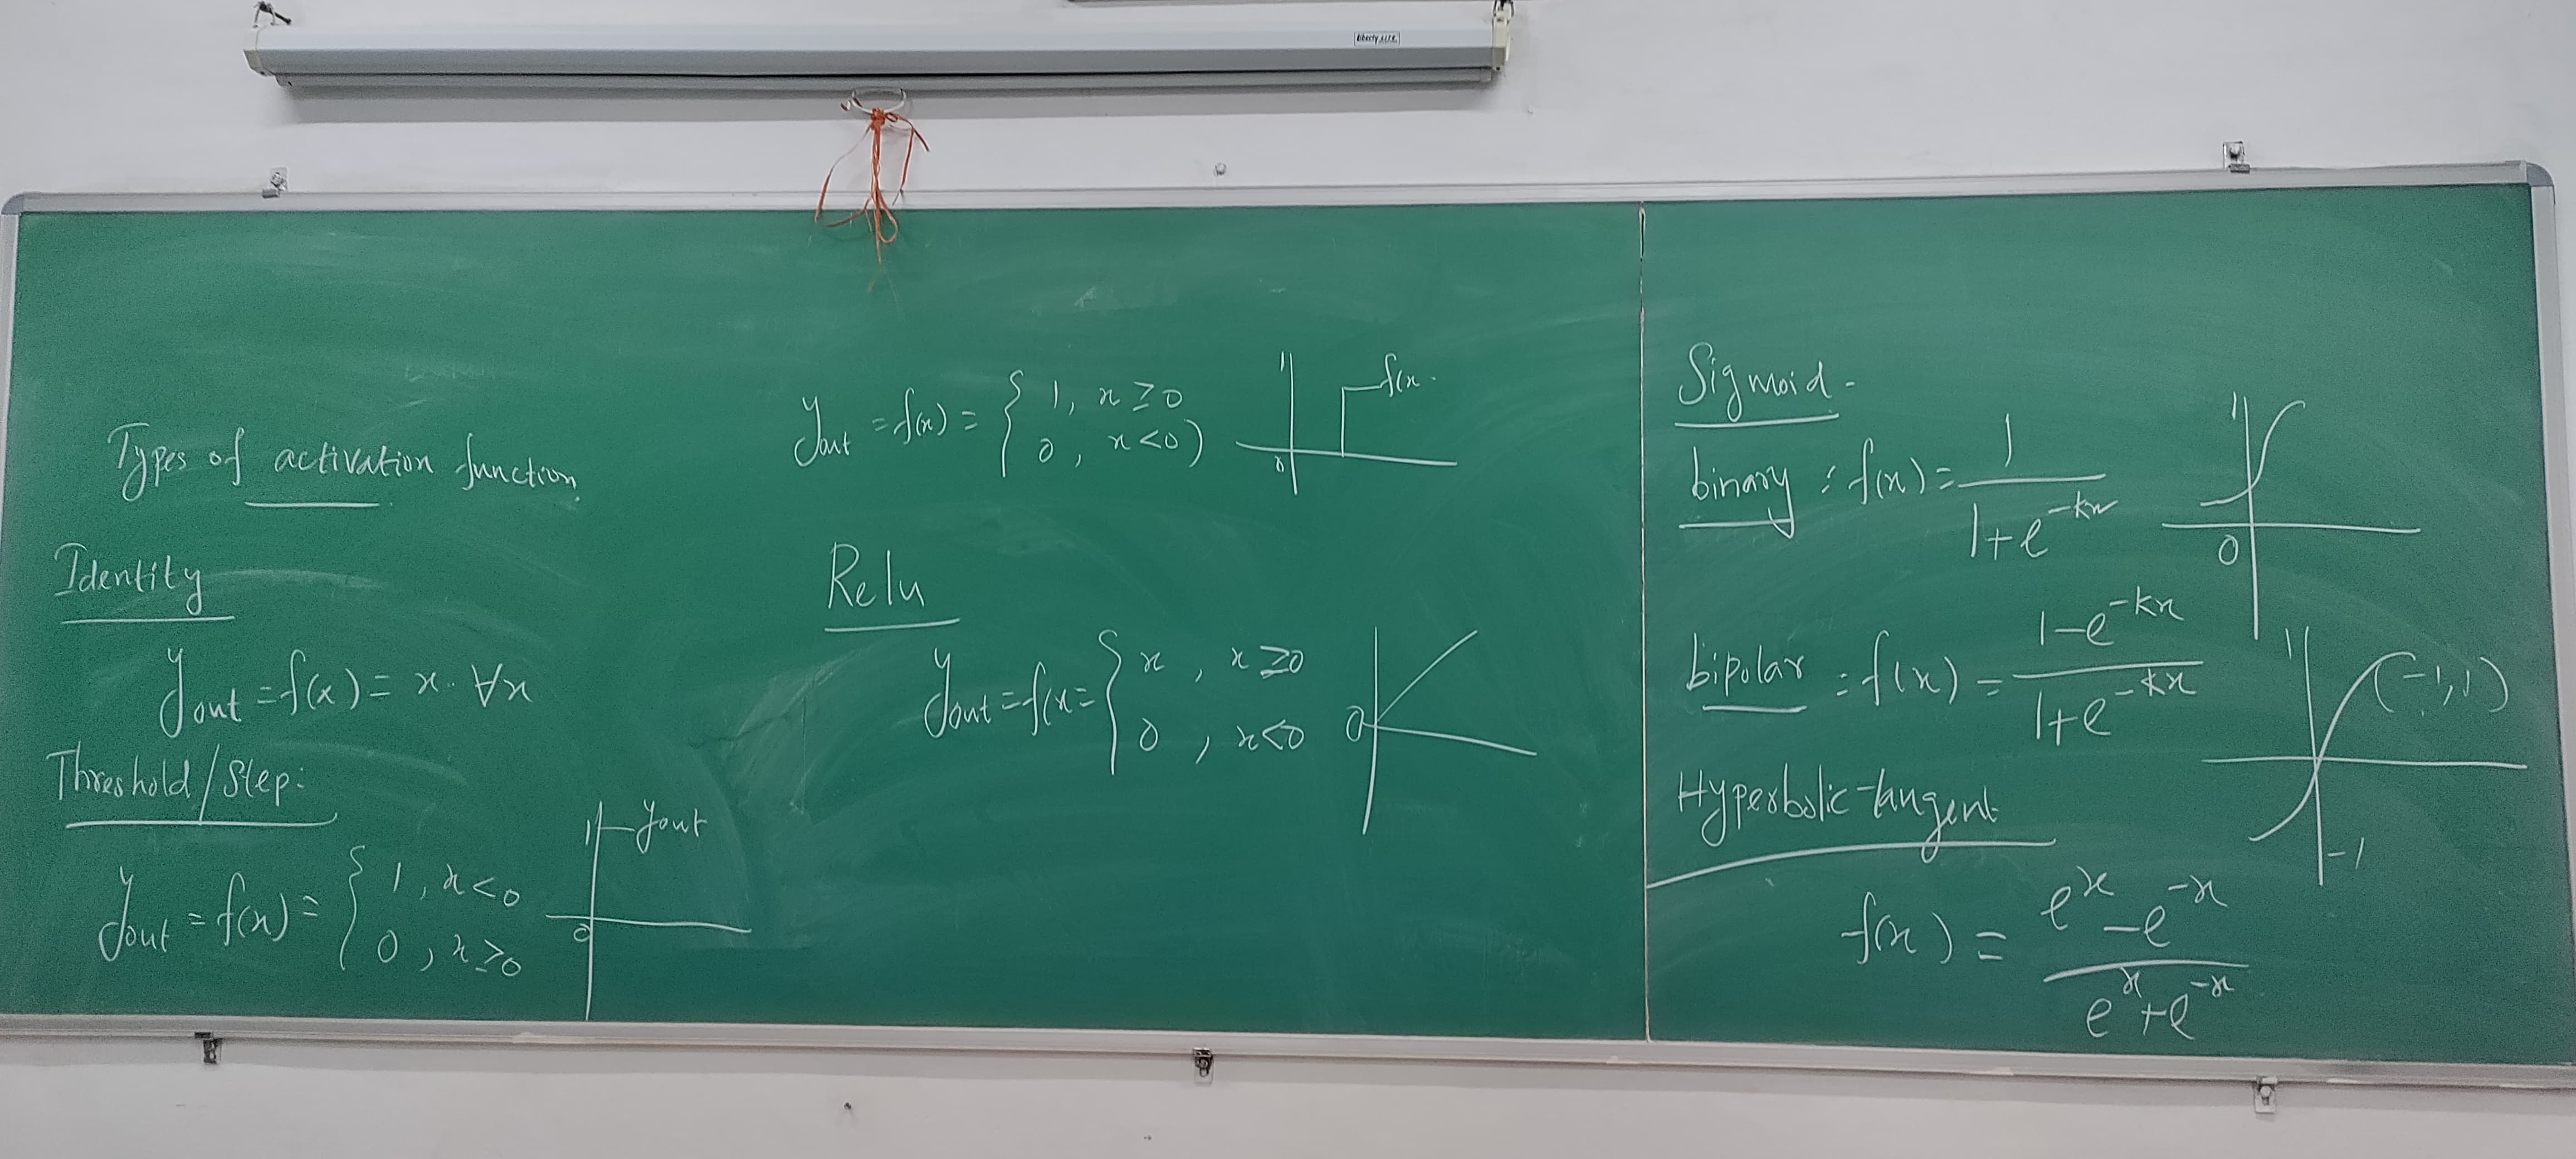 Types of activation function
Identity
yout = f(x) = x. ∀x
Threshold/Step:
yout = f(x) = { 1, x<0
0, x≥0
1 yout
0
yout = f(x) = { 1, x≥0
0, x<0)
1 f(x.
0
Relu
yout = f(x = { x, x≥0
0, x<0
0
Sigmoid -
binary : f(x) = 1 / 1+e^-kx
1
0
bipolar : f(x) = 1-e^-kx / 1+e^-kx
1 (-1,1)
-1
Hyperbolic-tangent
f(x) = e^x - e^-x / e^x + e^-x